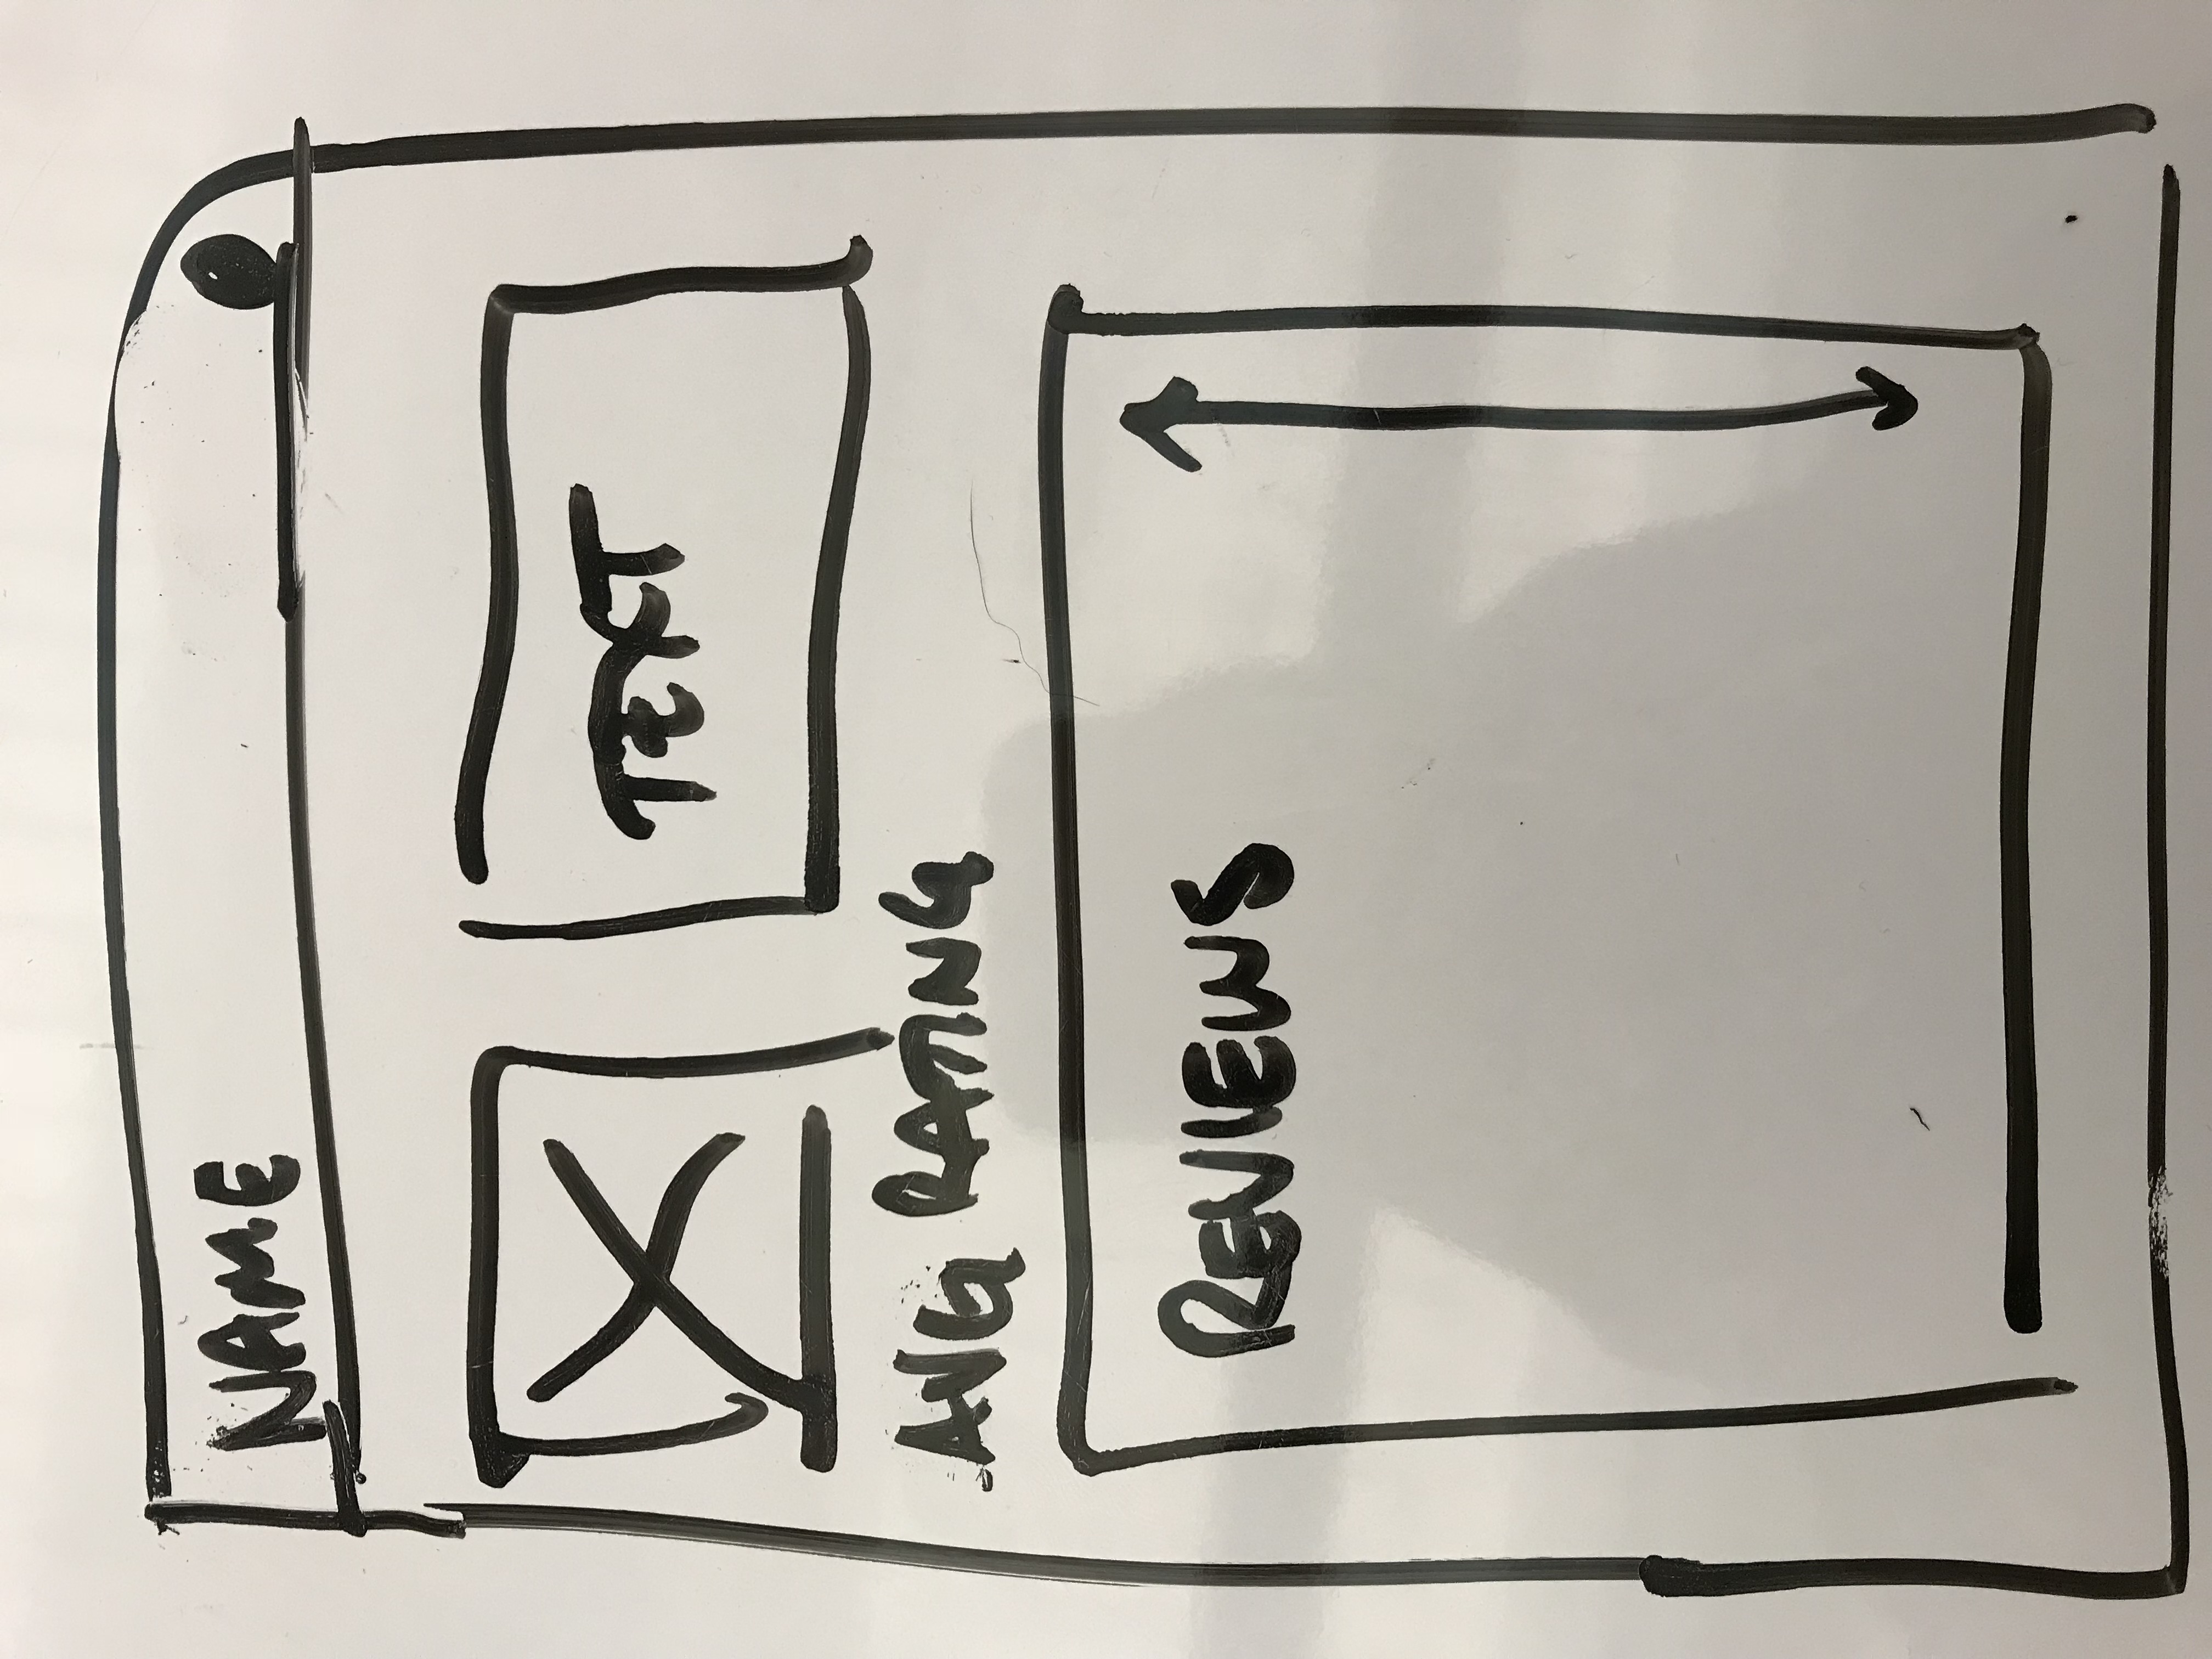 NAME
TEXT
AVG RATING
REVIEWS